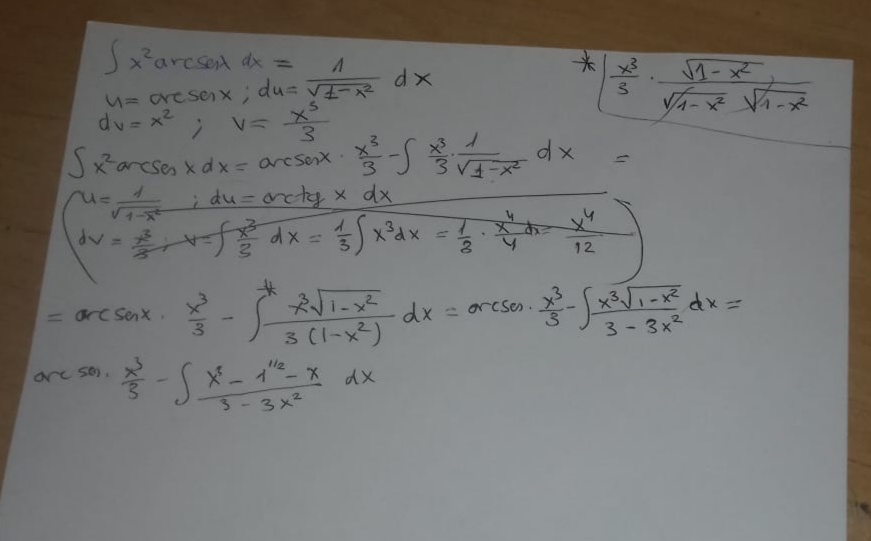 ∫ x² arcsenx dx =
u = arcsenx ; du = 1/√(1-x²) dx
dv = x² ; v = x³/3
* x³/3 · √(1-x²)/(√(1-x²) √(1-x²))
∫ x² arcsen x dx = arcsenx · x³/3 - ∫ x³/3 · 1/√(1-x²) dx =
u = 1/√(1-x²) ; du = arctg x dx
dv = x³/3 ; v = ∫ x³/3 dx = 1/3 ∫ x³dx = 1/3 · x⁴/4 dx = x⁴/12
= arcsenx · x³/3 - ∫* x³√(1-x²)/(3(1-x²)) dx = arcsen · x³/3 - ∫ x³√(1-x²)/(3-3x²) dx =
arcsen · x³/3 - ∫ (x³ - 1^1/2 - x)/(3-3x²) dx